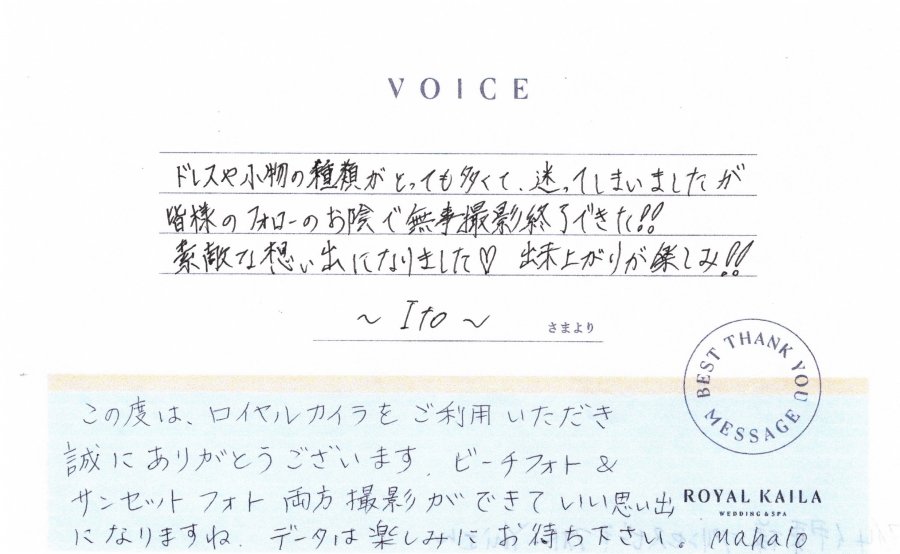 VOICE
ドレスや小物の種類がとっても多くて、迷ってしまいましたが
皆様のフォローのお陰で無事撮影終了できた!!
素敵な想い出になりました♡ 出来上がりが楽しみ!!
～ Ito ～ さまより
BEST THANK YOU MESSAGE
この度は、ロイヤルカイラをご利用いただき
誠にありがとうございます。ビーチフォト &
サンセットフォト両方撮影ができていい思い出
になりますね。データは楽しみにお待ち下さい。Mahalo
ROYAL KAILA
WEDDING & SPA